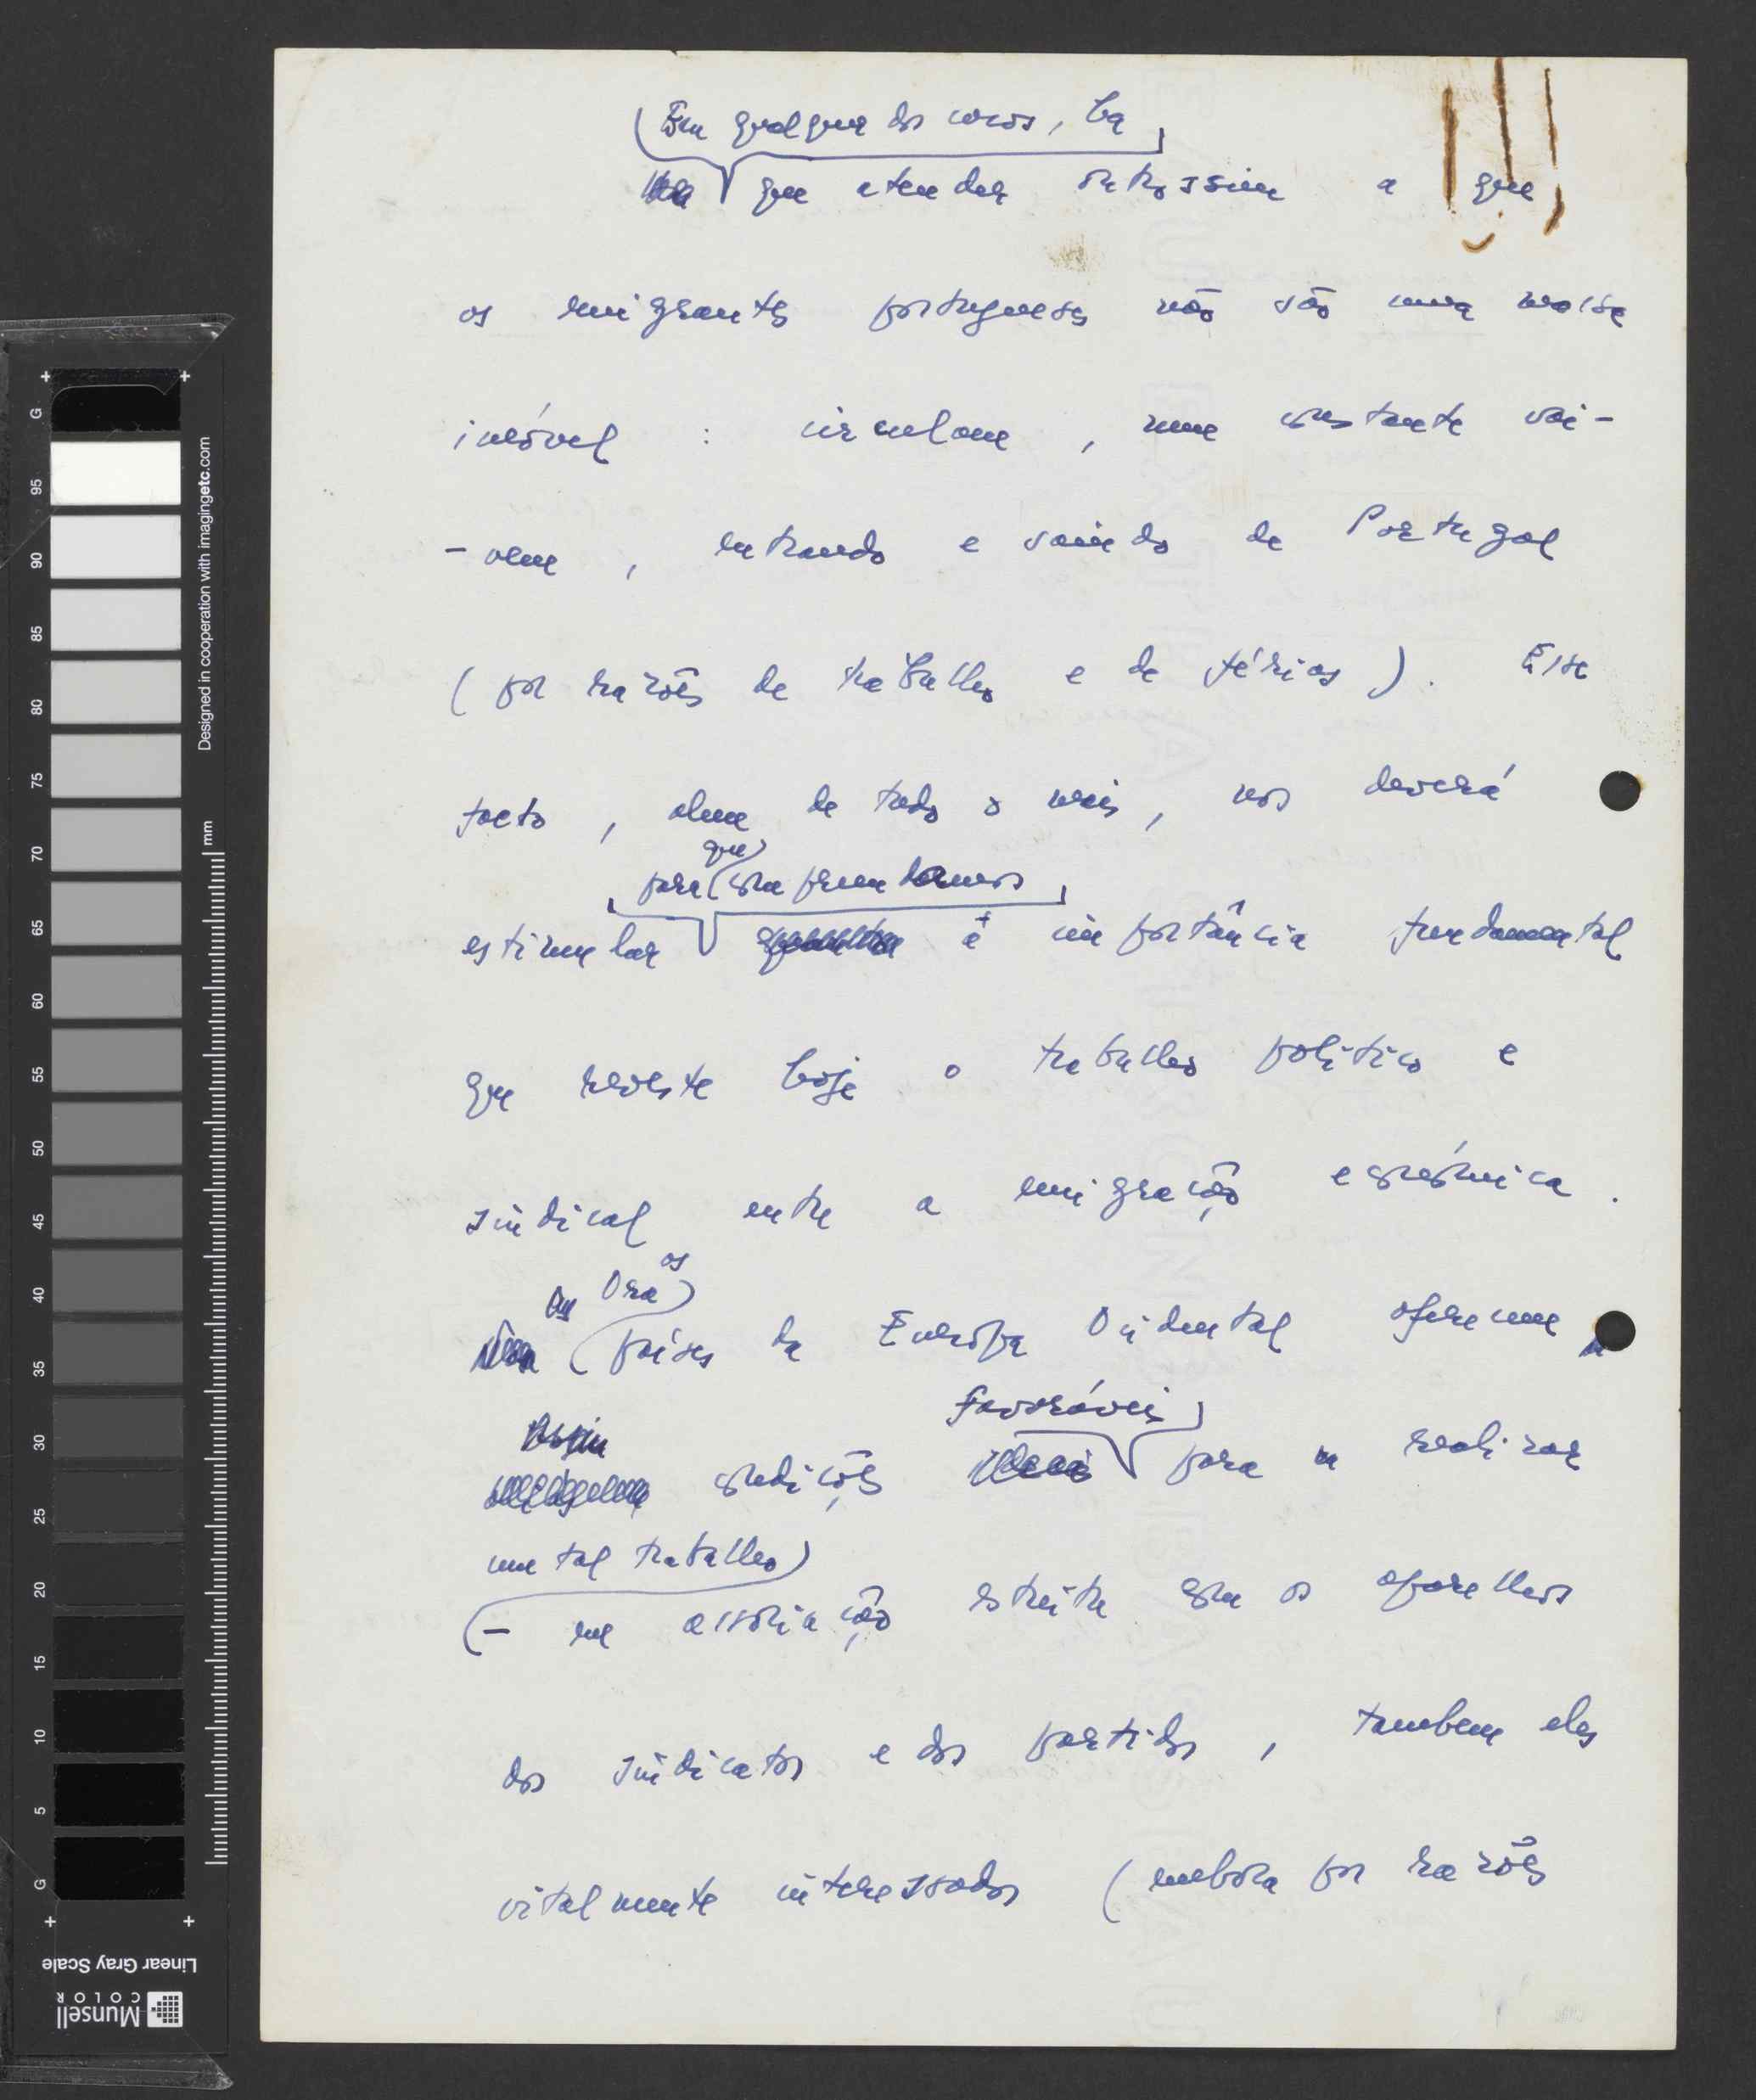 Em qualquer dos casos, há
que atender outrossim a que
os emigrantes portugueses não são uma massa
imóvel : circulam , num constante vai-
-vem , entrando e saindo de Portugal
( por razões de trabalho e de férias ) . Esse
facto , alem de tudo o mais , nos deverá
que
para compreendermos
estimular a importância fundamental
que reveste hoje o trabalho politico e
sindical entre a emigração económica .
Ora os
países da Europa Ocidental oferecem
favoráveis
condições para realizar
um tal trabalho
- em associação estreita com os aparelhos
dos sindicatos e dos partidos , tambem eles
vitalmente interessados ( embora por razões
G
95
90
85
80
75
70
65
60
55
50
45
40
35
30
25
20
15
10
5
G
mm
Designed in cooperation with imagingetc.com
Linear Gray Scale
Munsell
COLOR